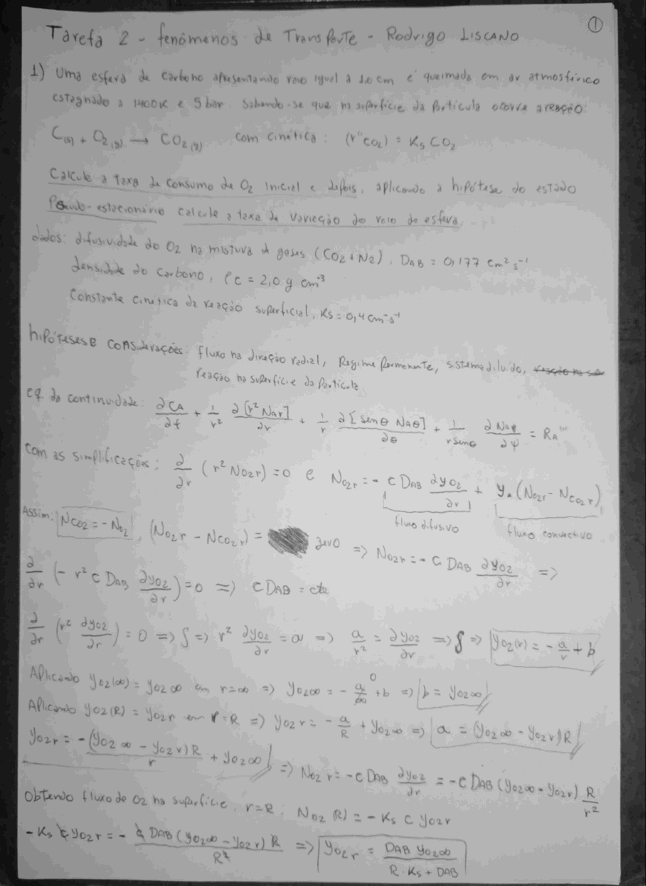 ①
Tarefa 2 - fenômenos de Transporte - Rodrigo LISCANO
1) Uma esfera de carbono apresentando raio igual à 1.0 cm é queimada em ar atmosférico
estagnado a 1400K e 5 bar. Sabendo-se que na superfície da partícula ocorre a reação:
C(s) + O2(g) → CO2(g) com cinética: (r''CO2) = Ks CO2
Calcule a taxa de consumo de O2 inicial e depois, aplicando a hipótese do estado
Pseudo-estacionário calcule a taxa de variação do raio da esfera.
dados: difusividade do O2 na mistura de gases (CO2+N2). DAB = 0,177 cm² s⁻¹
densidade do carbono, ρc = 2,0 g cm⁻³
Constante cinética da reação superficial, Ks = 0,4 cm s⁻¹
hipóteses e considerações: fluxo na direção radial, Regime permanente, sistema diluído,
reação na superfície da partícula
eq. da continuidade: ∂CA/∂t + 1/r² ∂[r² NAr]/∂r + 1/r ∂[senθ NAθ]/∂θ + 1/rsenθ ∂NAφ/∂φ = RA'''
Com as simplificações: ∂/∂r (r² NO2r) = 0 e NO2r = - c DAB ∂yO2/∂r + y (NO2r - NCO2r)
fluxo difusivo fluxo convectivo
Assim: NCO2 = -NO2, (NO2r - NCO2r) = zero => NO2r = - c DAB ∂yO2/∂r =>
∂/∂r (- r² c DAB ∂yO2/∂r) = 0 => c DAB = cte
∂/∂r (r² ∂yO2/∂r) = 0 => ∫ => r² ∂yO2/∂r = a => a/r² = ∂yO2/∂r => ∫ => yO2(r) = - a/r + b
Aplicando yO2(∞) = yO2∞ em r=∞ => yO2∞ = - a/∞ 0 + b => b = yO2∞
Aplicando yO2(R) = yO2r em r=R => yO2r = - a/R + yO2∞ => a = (yO2∞ - yO2r)R
yO2r = - (yO2∞ - yO2r)R/r + yO2∞ => NO2r = - c DAB ∂yO2/∂r = - c DAB (yO2∞ - yO2r) R/r²
Obtendo fluxo de O2 na superfície r=R, NO2(R) = - Ks c yO2r
- Ks c yO2r = - c DAB (yO2∞ - yO2r) R/R² => yO2r = DAB yO2∞/R·Ks + DAB